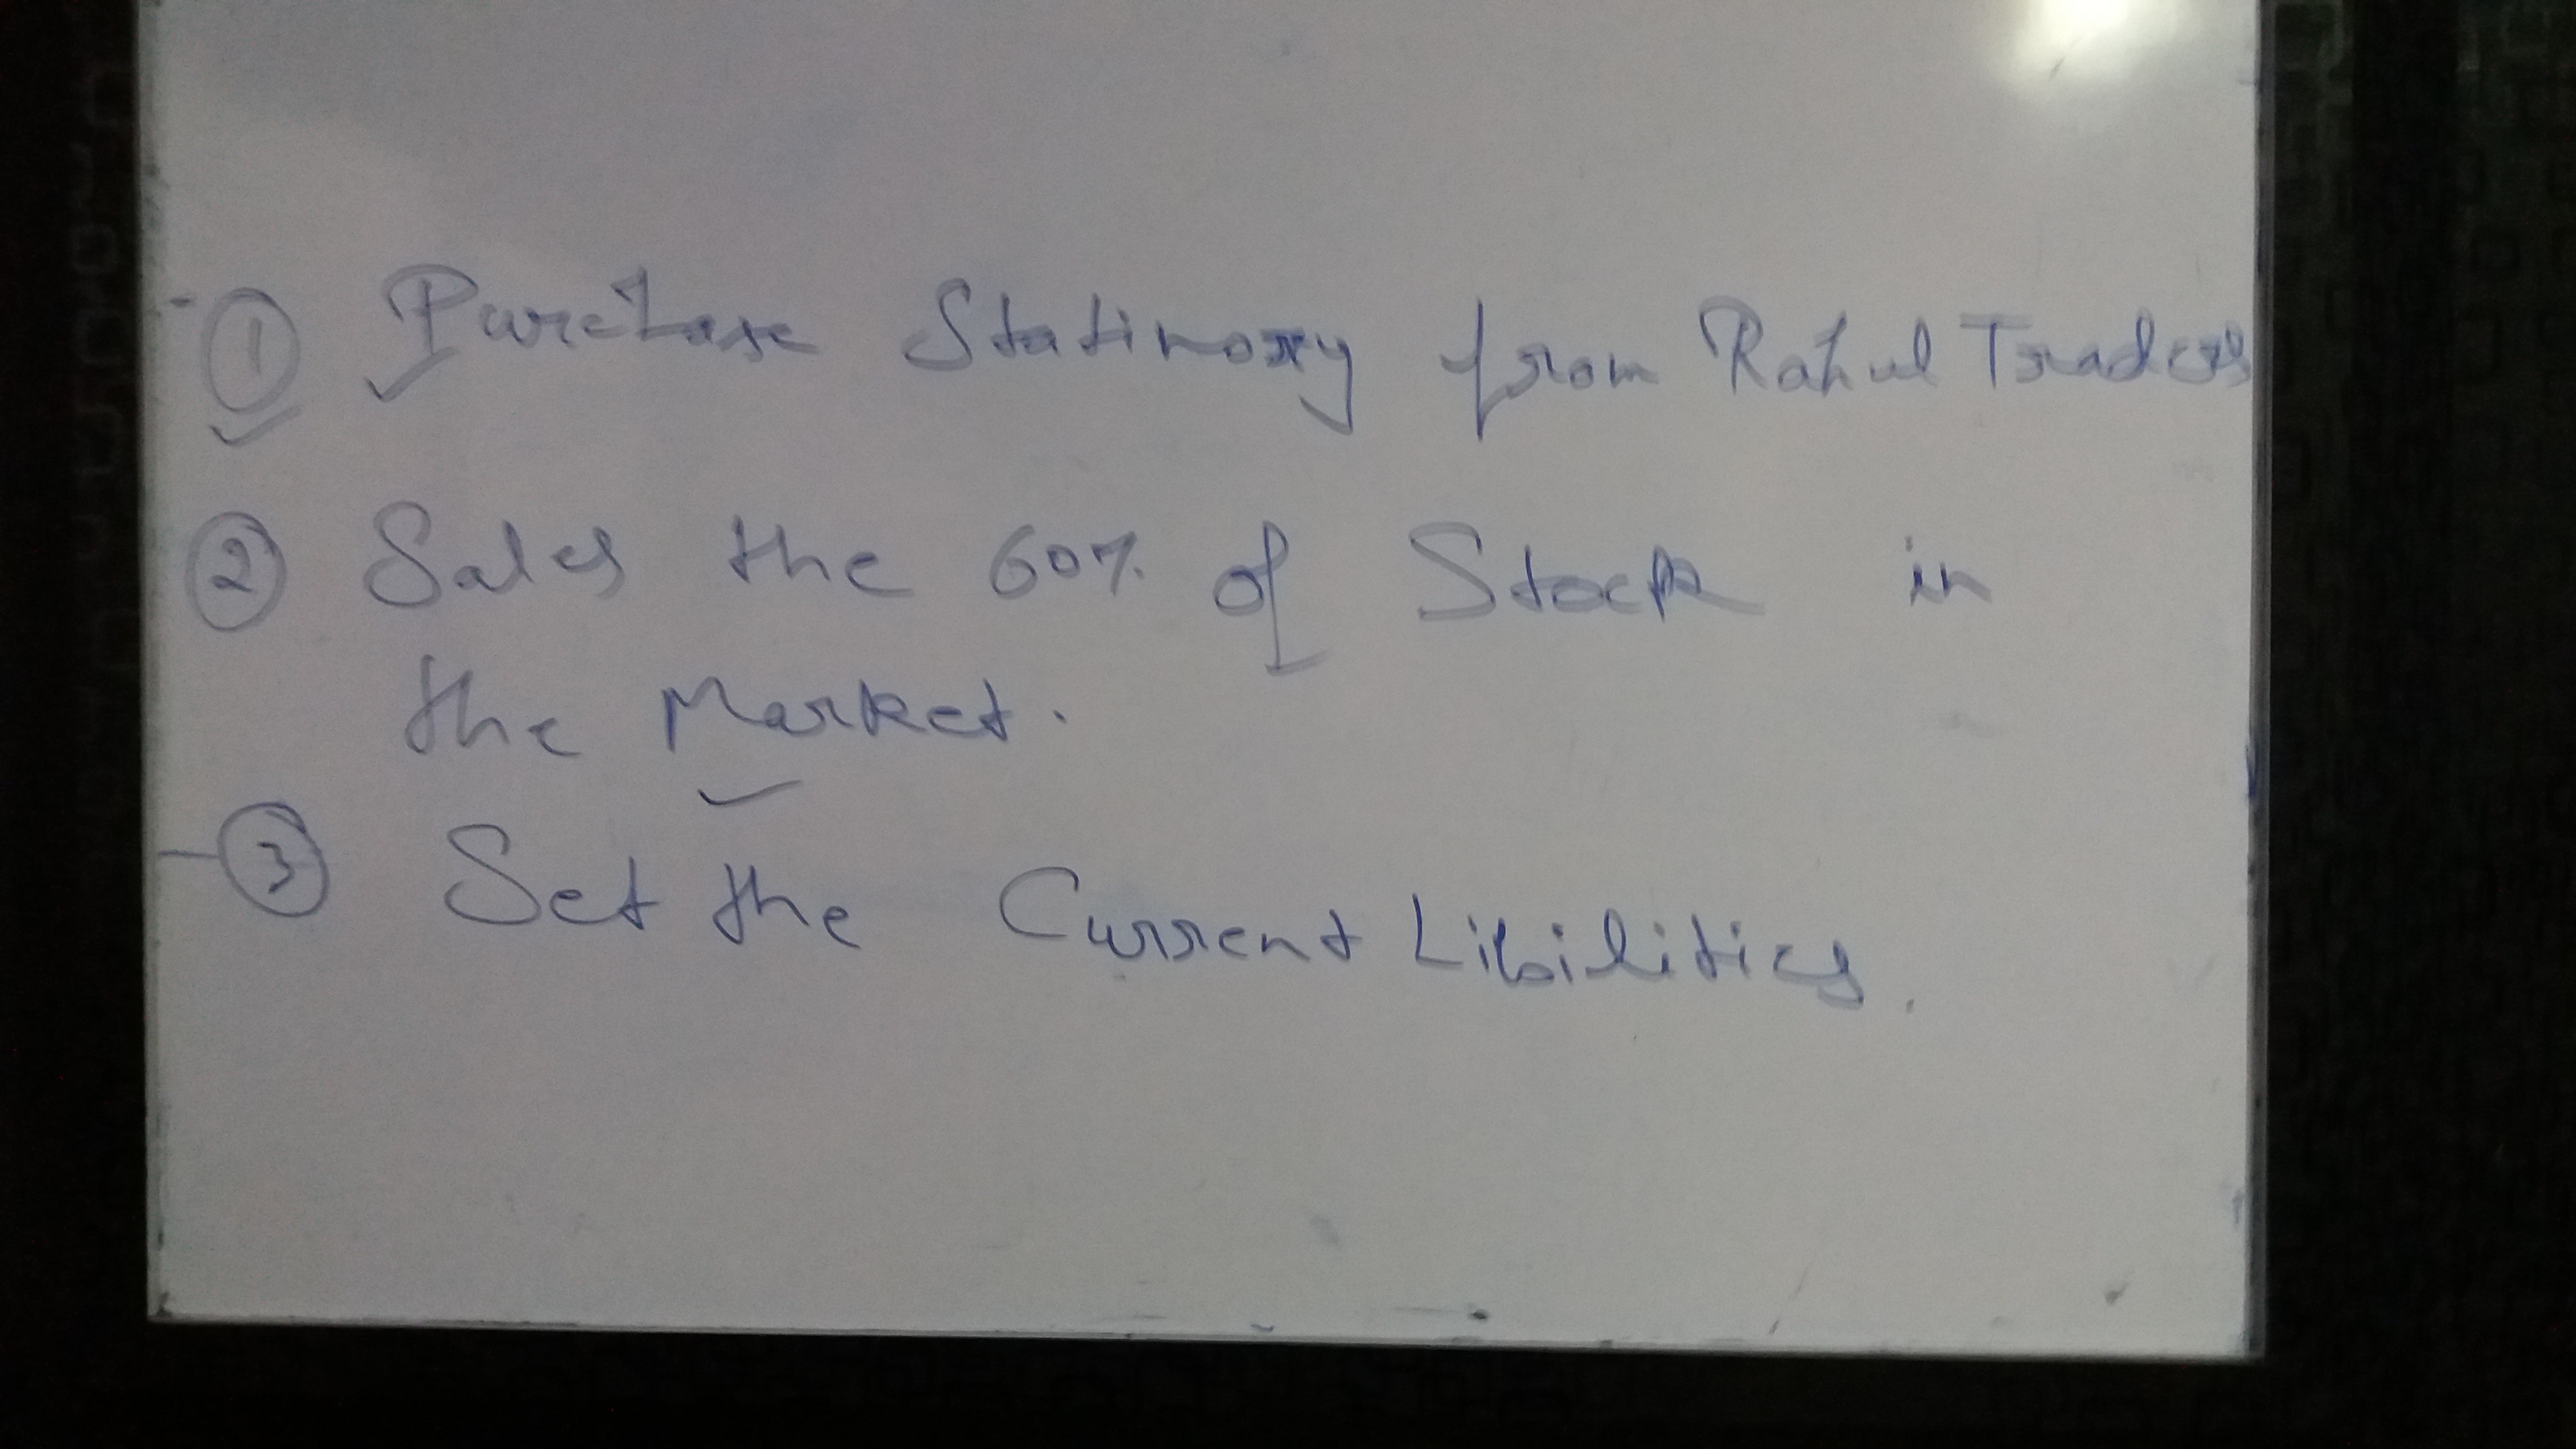 ① Purchase Statinory from Rahul Traders
② Sales the 60% of Stock in
the Market.
③ Set the Current Libilities.